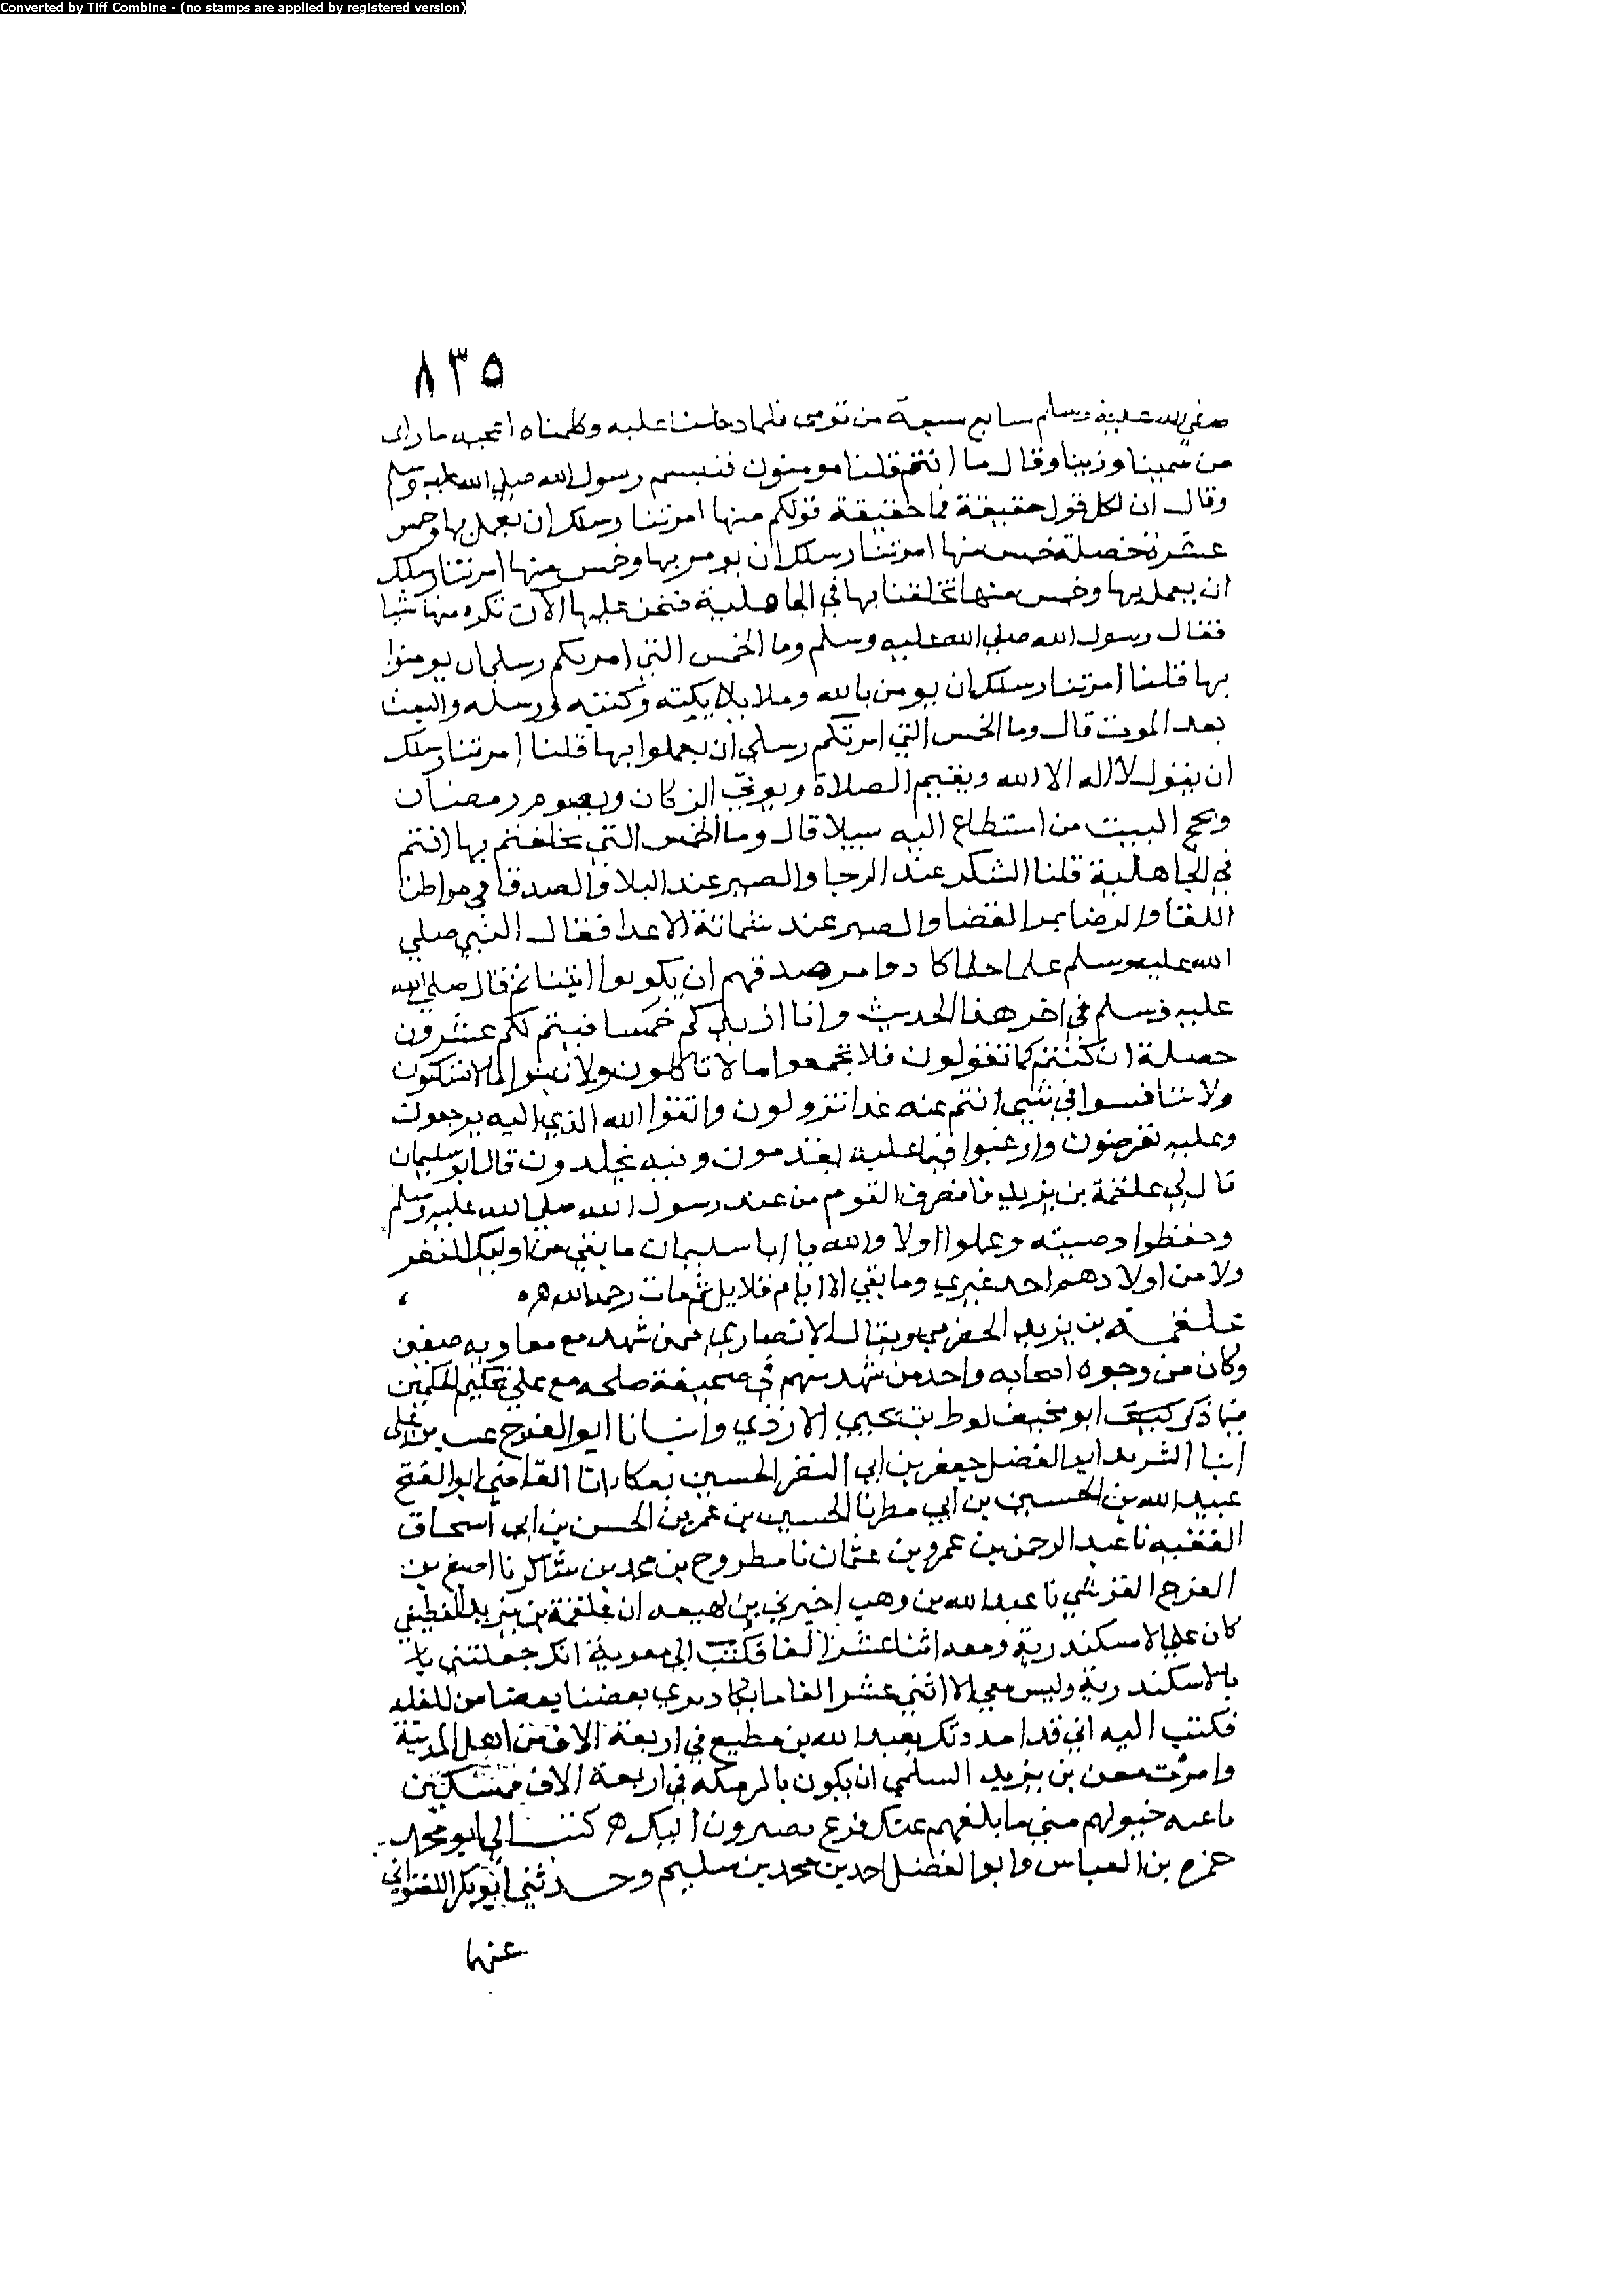 Converted by Tiff Combine - (no stamps are applied by registered version)
٨٣٥
صلى الله عليه وسلم سابع سبعة من قومى فلما دخلنا عليه وكلمناه اعجبه ما راى
من سمتنا وزينا وقال ما انتم قلنا مومنون فتبسم رسول الله صلى الله عليه وسلم
وقال ان لكل قول حقيقة فما حقيقة قولكم منها امرتنا رسلك ان نعمل بها وخمس
عشرة خصلة خمس منها امرتنا رسلك ان نومن بها وخمس منها امرتنا رسلك
ان نعمل بها وخمس منها تخلقنا بها في الجاهلية فنحن عليها الآن تكره منها شيا
فقال رسول الله صلى الله عليه وسلم وما الخمس التي امرتكم رسلي ان يومنوا
بها قلنا امرتنا رسلك ان نومن بالله وملايكته وكتبه ورسله والبعث
بعد الموت قال وما الخمس التي امرتكم رسلي ان يعملوا بها قلنا امرتنا رسلك
ان نقول لا اله الا الله ونقيم الصلاة ونوتي الزكاة ونصوم رمضان
ونحج البيت من استطاع اليه سبيلا قال وما الخمس التي تخلقتم بها انتم
في الجاهلية قلنا الشكر عند الرخا والصبر عند البلا والصدق في مواطن
اللقا والرضا بمر القضا والصبر عند شماتة الاعدا فقال النبي صلى
الله عليه وسلم علما حلما كادوا من صدقهم ان يكونوا انبيا ثم قال صلى الله
عليه وسلم في اخر هذا الحديث وانا ازيدكم خمسا فيتم لكم عشرون
خصلة ان كنتم كما تقولون فلا تجمعوا ما لا تاكلون ولا تبنوا ما لا تسكنون
ولا تنافسوا في شي انتم عنه غدا تزولون واتقوا الله الذي اليه ترجعون
وعليه تعرضون وارغبوا فيما عليه تقدمون وفيه تخلدون قال ابو سليمان
قال لي علقمة بن يزيد فانصرف القوم من عند رسول الله صلى الله عليه وسلم
وحفظوا وصيته وعملوا اولا والله يا ابا سليمان ما بقي من اوليك النفر
ولا من اولادهم احد غيري وما بقي الا ايام قلايل ثم مات رحمه الله
علقمة بن يزيد الحضرمي ويقال الانصاري ممن شهد مع معاويه صفين
وكان من وجوه اصحابه واحد من شهد منهم في صحيفة صلحه مع علي بتحكيم الحكمين
فيما ذكر ابو مخنف لوط بن يحيى الازدي وانبانا ابو الفرج غيث بن علي
انبا الشريف ابو الفضل جعفر بن ابي النضر الحسين بعكا انا القاضي ابو الفتح
عبيد الله بن الحسين بن ابي مطر نا الحسين بن عمر بن الحسن بن ابى اسحاق
الفقيه نا عبد الرحمن بن عمرو بن عثمان نا مطروح بن محمد بن شاكر نا اصبغ بن
الفرج القرشي نا عبد الله بن وهب اخبرني بن لهيعه ان علقمة بن يزيد الغطيفي
كان على الاسكندرية ومعه اثنا عشر الفا فكتب الى معوية انك جعلتني با
بالاسكندرية وليس معي الا اثني عشر الفا ما يكاد يرى بعضنا بعضا من القله
فكتب اليه اني قد امددتك بعبد الله بن مطيع في اربعة الاف من اهل المدينة
وامرت معن بن يزيد السلمي ان يكون بالرمله في اربعة الاف ممسكين
باعنه خيولهم متى ما بلغهم عنك فزع يصيرون اليك ه كتب الي ابو محمد
حمزه بن العباس وابو الفضل احمد بن محمد بن سليم وحدثني ابو بكر اللفتواني
عنها